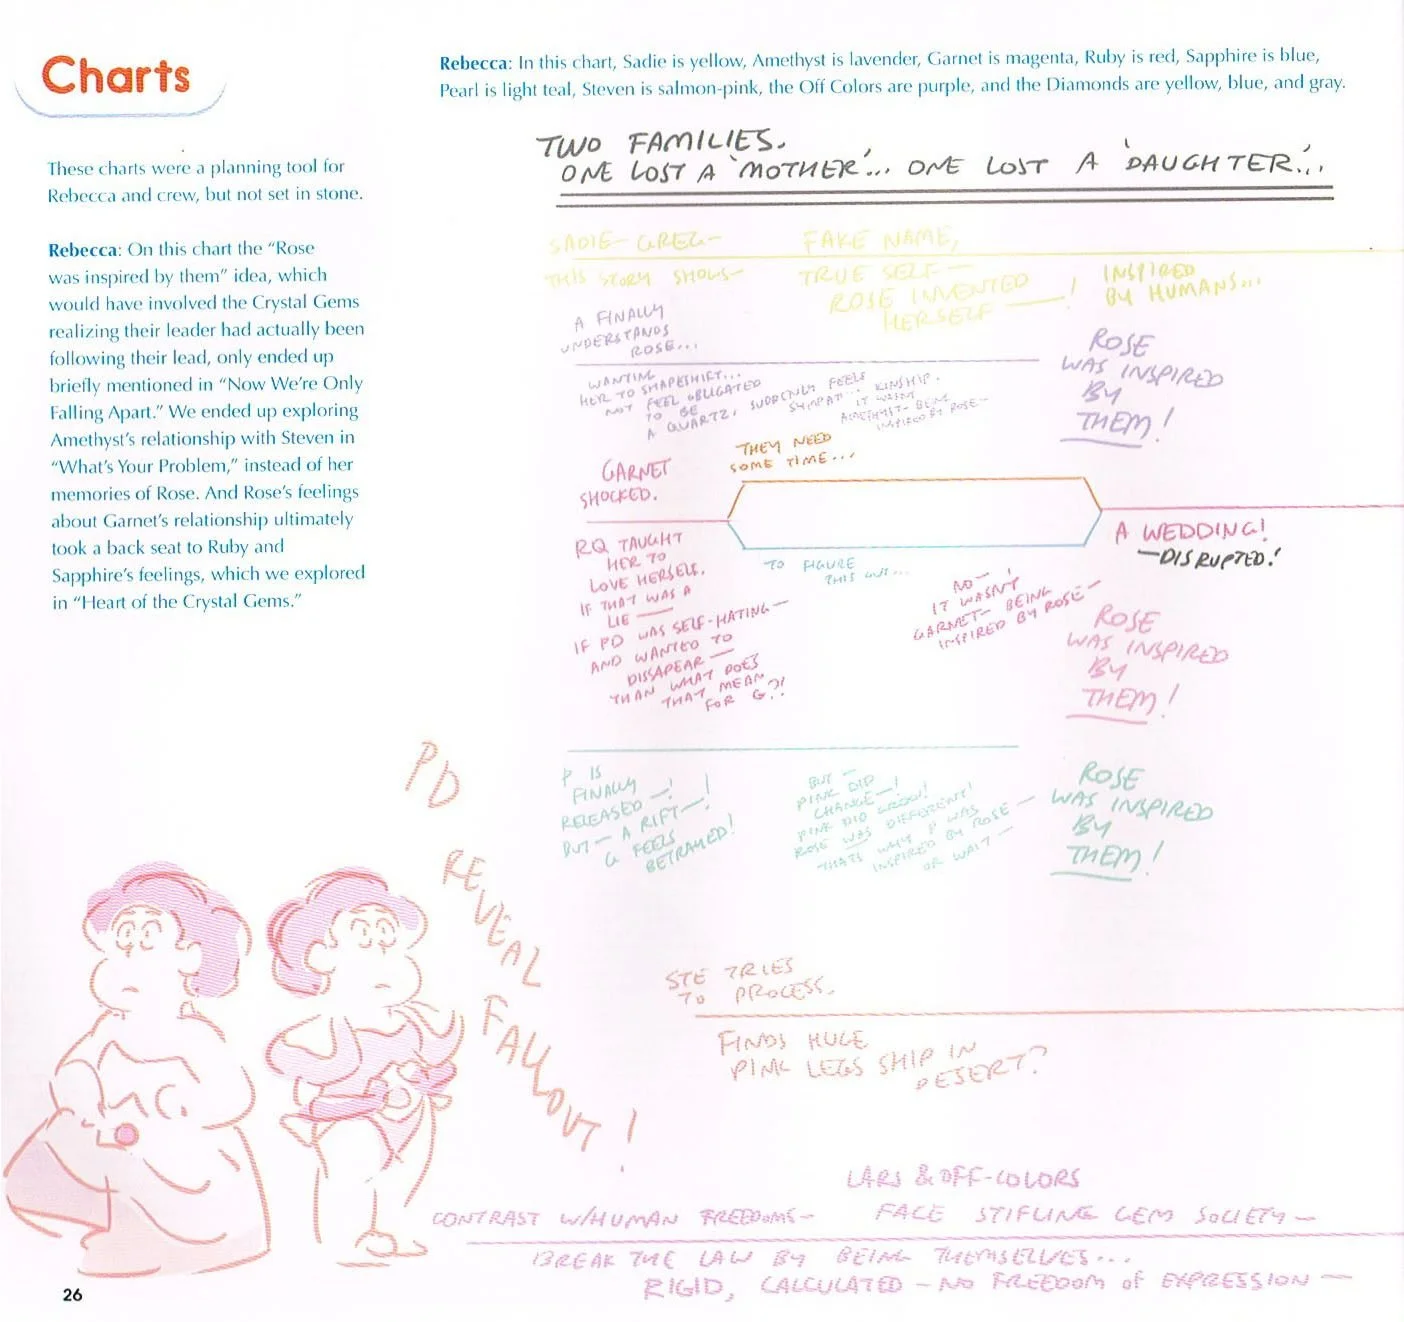 Charts
These charts were a planning tool for
Rebecca and crew, but not set in stone.
Rebecca: On this chart the “Rose
was inspired by them” idea, which
would have involved the Crystal Gems
realizing their leader had actually been
following their lead, only ended up
briefly mentioned in “Now We’re Only
Falling Apart.” We ended up exploring
Amethyst’s relationship with Steven in
“What’s Your Problem,” instead of her
memories of Rose. And Rose’s feelings
about Garnet’s relationship ultimately
took a back seat to Ruby and
Sapphire’s feelings, which we explored
in “Heart of the Crystal Gems.”
Rebecca: In this chart, Sadie is yellow, Amethyst is lavender, Garnet is magenta, Ruby is red, Sapphire is blue,
Pearl is light teal, Steven is salmon-pink, the Off Colors are purple, and the Diamonds are yellow, blue, and gray.
TWO FAMILIES.
ONE LOST A 'MOTHER'... ONE LOST A 'DAUGHTER'...
SADIE-GREG-
THIS STORY SHOWS-
FAKE NAME,
TRUE SELF-
ROSE INVENTED
HERSELF —!
INSPIRED
BY HUMANS...
A FINALLY
UNDERSTANDS
ROSE...
WANTING
HER TO SHAPESHIFT...
NOT FEEL OBLIGATED
TO BE
A QUARTZ, SUDDENLY FEELS
SYMPAT. KINSHIP.
IT WASN'T
AMETHYST- BEING
INSPIRED BY ROSE-
ROSE
WAS INSPIRED
BY
THEM!
GARNET
SHOCKED.
THEY NEED
SOME TIME...
TO FIGURE
THIS OUT...
A WEDDING!
-DISRUPTED!
RQ TAUGHT
HER TO
LOVE HERSELF.
IF THAT WAS A
LIE —
IF PD WAS SELF-HATING-
AND WANTED TO
DISSAPEAR-
THAN WHAT DOES
THAT MEAN
FOR G?!
NO-!
IT WASN'T
GARNET- BEING
INSPIRED BY ROSE-
ROSE
WAS INSPIRED
BY
THEM!
P IS
FINALLY
RELEASED -!
BUT- A RIFT-!
G FEELS
BETRAYED!
BUT-
PINK DID
CHANGE-!
PINK DID GROW!
ROSE WAS DIFFERENT!
THATS WHY P WAS
INSPIRED BY ROSE-
OR WAIT-
ROSE
WAS INSPIRED
BY
THEM!
PD
REVEAL
FALLOUT!
STE TRIES
TO PROCESS.
FINDS HUGE
PINK LEGS SHIP IN
DESERT?
LARS & OFF-COLORS
CONTRAST W/HUMAN FREEDOMS- FACE STIFLING GEM SOCIETY-
BREAK THE LAW BY BEING THEMSELVES...
RIGID, CALCULATED - NO FREEDOM OF EXPRESSION-
26